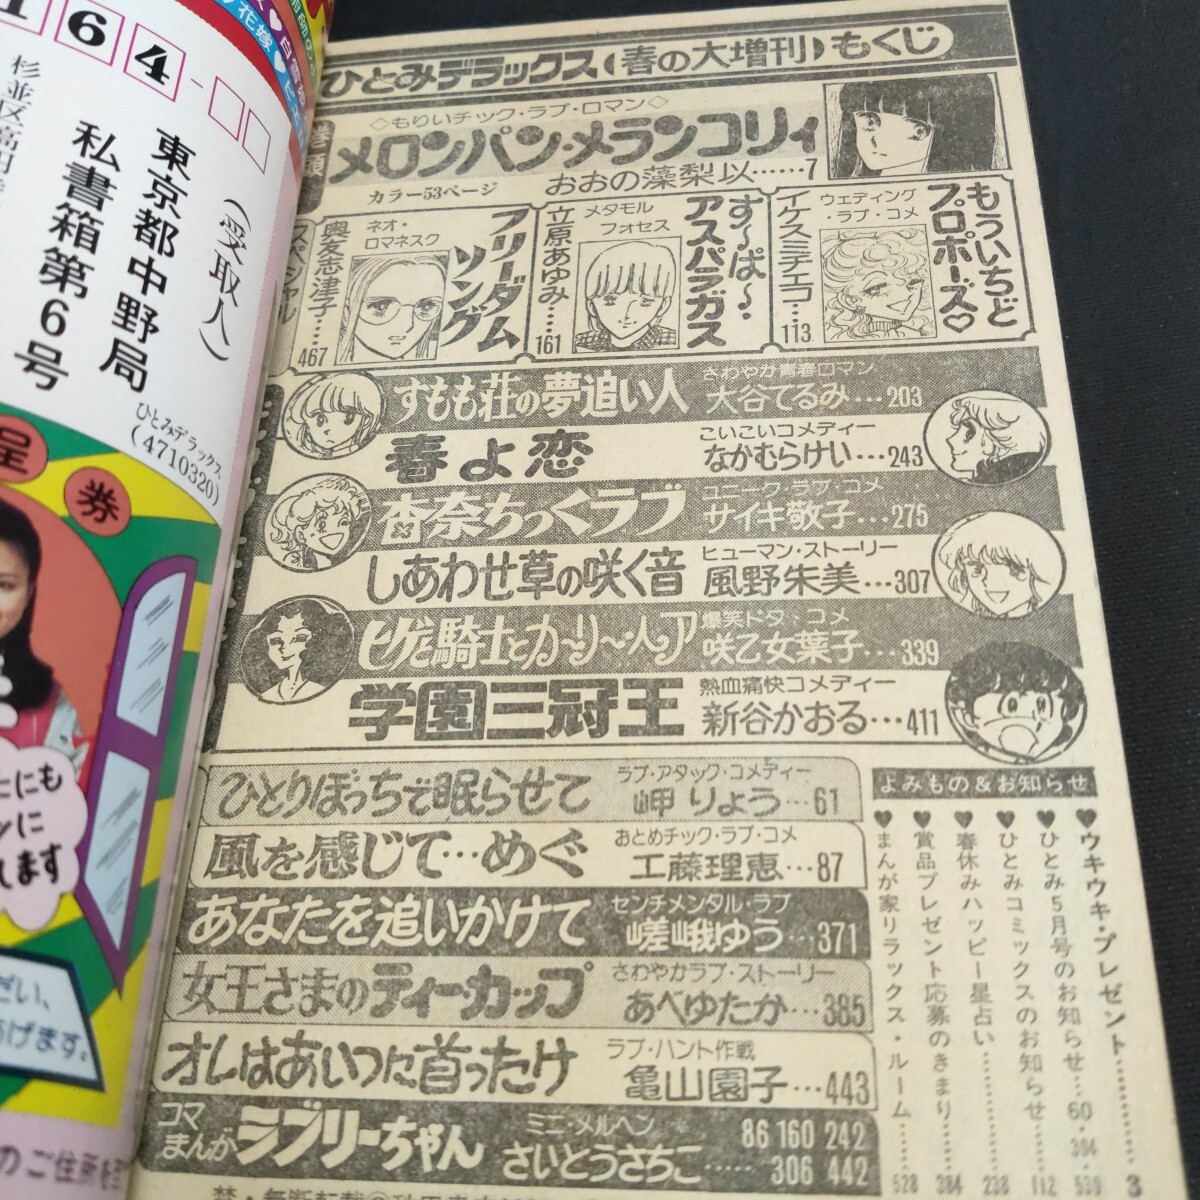 164-
(受取人)
東京都中野局
私書箱第6号
ひとみデラックス
(4710320)
呈
券
ひとみデラックス(春の大増刊)もくじ
巻頭
◇もりいチック・ラブ・ロマン◇
メロンパン・メランコリィ
カラー53ページ
おおの藻梨以……7
もういちどプロポーズ♡
ウェディング・ラブ・コメ
イケスミチエコ…113
す〜ぱ〜アスパラガス
メタモルフォセス
立原あゆみ…161
フリーダムソング
ネオ・ロマネスク
奥友志津子…467
スペシャル
すもも荘の夢追い人
さわやか青春ロマン
大谷てるみ…203
春よ恋
こいこいコメディー
なかむらけい…243
杏奈ちっくラブ
ユニーク・ラブ・コメ
サイキ敬子…275
しあわせ草の咲く音
ヒューマン・ストーリー
風野朱美…307
ヒゲと騎士とカ〜リ〜・ヘア
爆笑ドタ・コメ
咲乙女葉子…339
学園三冠王
熱血痛快コメディー
新谷かおる…411
ひとりぼっちで眠らせて
ラブ・アタック・コメディー
岬りょう…61
風を感じて…めぐ
おとめチック・ラブ・コメ
工藤理恵…87
あなたを追いかけて
センチメンタル・ラブ
嵯峨ゆう…371
女王さまのティーカップ
さわやかラブ・ストーリー
あべゆたか…385
オレはあいつに首ったけ
ラブ・ハント作戦
亀山園子…443
コママンガ
ラブリーちゃん
ミニ・メルヘン
さいとうさちこ……
86 160 242
306 442
よみもの&お知らせ
♥ウキウキ・プレゼント……3
♥ひとみ5月号のお知らせ…60・384・530
♥ひとみコミックスのお知らせ……112
♥春休みハッピー星占い……238
♥賞品プレゼント応募のきまり……384
♥まんが家リラックス・ルーム……528